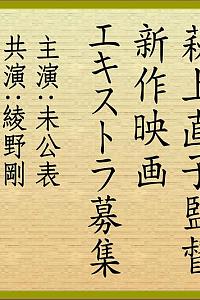 荻上直子監督
新作映画
エキストラ募集
主演:未公表
共演:綾野剛